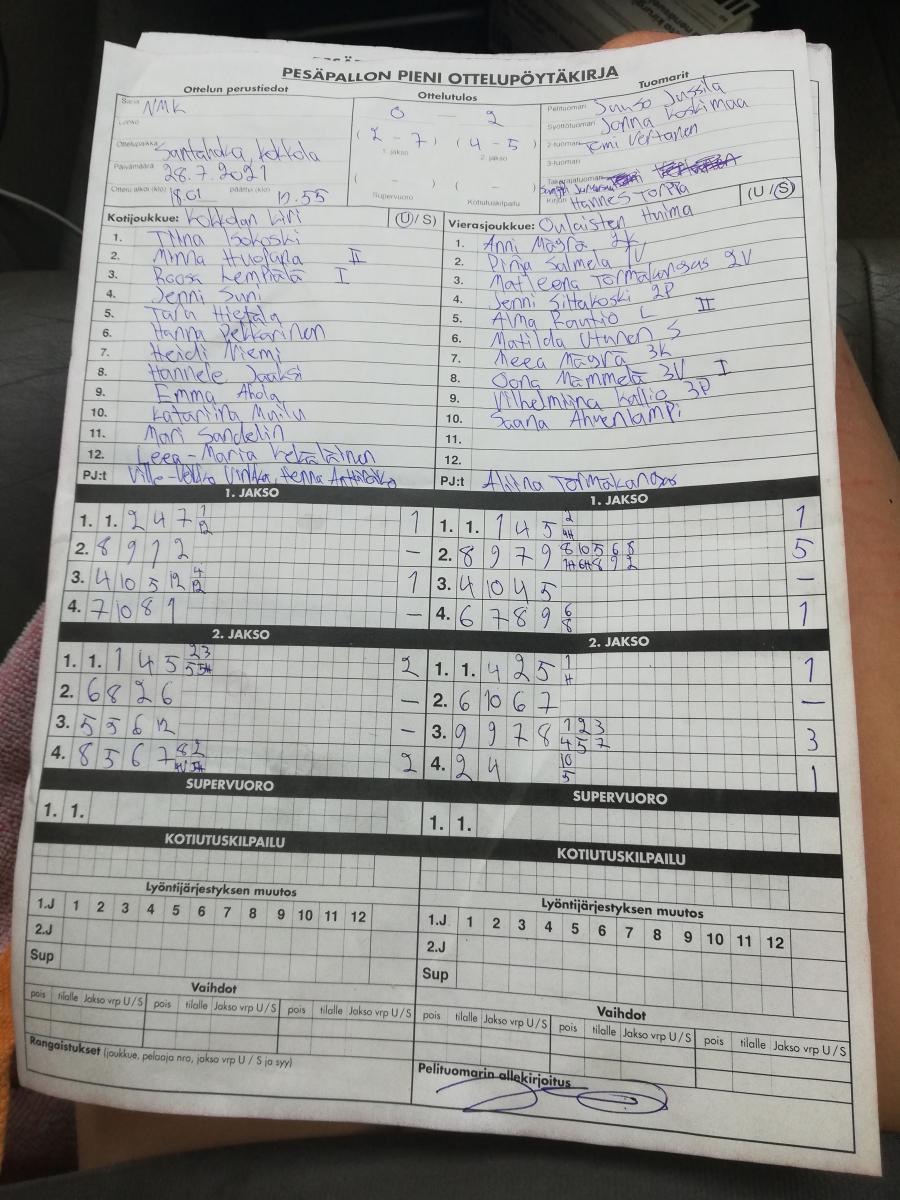 PESÄPALLON PIENI OTTELUPÖYTÄKIRJA
Ottelun perustiedot
Sarja NMK
Lohko
Ottelupaikka Santahaka, Kokkola
Päivämäärä 28.7.2021
Ottelu alkoi (klo) 18.01 päättyi (klo) 19.55
Ottelutulos
0 - 2
(2 - 7) (4 - 5)
1. jakso 2. jakso
( - ) ( - )
Supervuoro Kotiutuskilpailu
Tuomarit
Pelituomari Juuso Jussila
Syöttötuomari Jonna Koskimaa
2-tuomari Temi Vertanen
3-tuomari
Takarajatuomari
Kirjuri Hannes Torppa
Kotijoukkue: Kokkolan Kiri (U / S)
1. Tiina Isokoski
2. Minna Huojana II
3. Roosa Lempiälä I
4. Jenni Suni
5. Taru Hietala
6. Hanna Pekkarinen
7. Heidi Niemi
8. Hannele Jaaksi
9. Emma Ahola
10. Katariina Muilu
11. Mari Sandelin
12. Leea-Maria Kekäläinen
PJ:t Ville-Veikko Henna
Vierasjoukkue: Oulaisten Huima (U / S)
1. Anni Mägrä 2K
2. Pinja Salmela 1V
3. Matleena Törmäkangas 2V
4. Jenni Siltakoski 2P
5. Alma Rautio L II
6. Matilda Utunen S
7. Meea Mägrä 3K
8. Oona Mämmelä 3V I
9. Vilhelmiina Kallio 3P
10. Saana Ahvenlampi
11.
12.
PJ:t Aliina Törmäkangas
1. JAKSO
1. 1. 2 4 7 1 12 1
2. 8 9 1 2 –
3. 4 10 5 12 4 12 1
4. 7 10 8 1 –
2. JAKSO
1. 1. 1 4 5 2 3 5 5H 2
2. 6 8 2 6 –
3. 5 5 6 12 –
4. 8 5 6 7 8 2 2
SUPERVUORO
1. 1.
KOTIUTUSKILPAILU
Lyöntijärjestyksen muutos
1.J 1 2 3 4 5 6 7 8 9 10 11 12
2.J
Sup
Vaihdot
pois tilalle Jakso vrp U / S pois tilalle Jakso vrp U / S pois tilalle Jakso vrp U / S
Rangaistukset (joukkue, pelaaja nro, jakso vrp U / S ja syy)
1. JAKSO
1. 1. 1 4 5 2 4H 1
2. 8 9 7 9 8 10 5 6 8 7H 6H 8 9 2 5
3. 4 10 4 5 –
4. 6 7 8 9 6 8 1
2. JAKSO
1. 1. 4 2 5 1 H 1
2. 6 10 6 7 –
3. 9 9 7 8 1 2 3 4 5 7 3
4. 2 4 10 5 1
SUPERVUORO
1. 1.
KOTIUTUSKILPAILU
Lyöntijärjestyksen muutos
1.J 1 2 3 4 5 6 7 8 9 10 11 12
2.J
Sup
Vaihdot
pois tilalle Jakso vrp U / S pois tilalle Jakso vrp U / S pois tilalle Jakso vrp U / S
Pelituomarin allekirjoitus